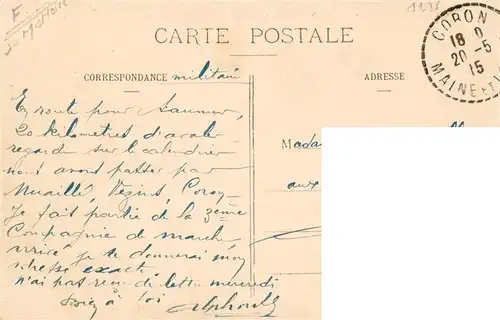 F.
CARTE POSTALE
CORON
18 0
20-5
15
MAINE ET
CORRESPONDANCE militaire
ADRESSE
En route pour Saumur,
20 kilometres d'avaler
regarde sur le calendrier
nous avons passer par
Nuaillé, Vezins, Coron
Je fait partie de la 3eme
Compagnie de marche
arrivé je te donnerai mon
adresse exacte.
n'ai pas reçu de lettre mercredi
à toi Alphonse
Mada
aux